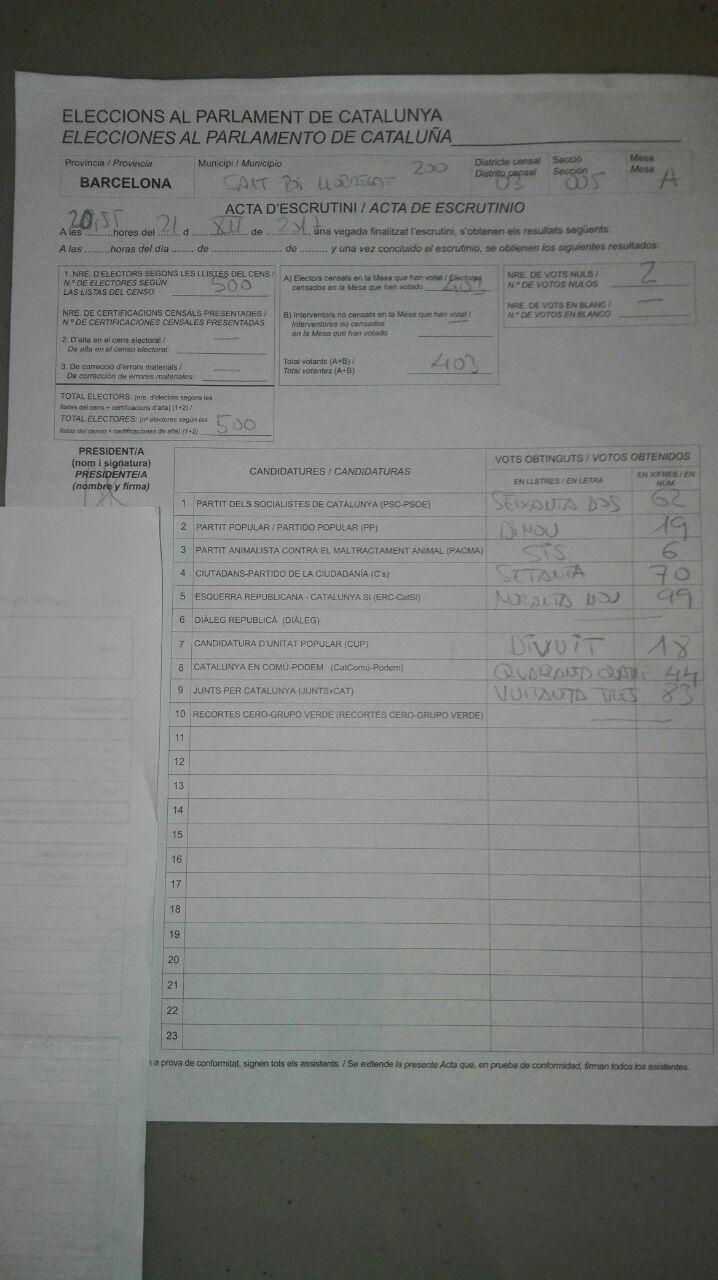 ELECCIONS AL PARLAMENT DE CATALUNYA
ELECCIONES AL PARLAMENTO DE CATALUÑA
Província / Provincia
BARCELONA
Municipi / Municipio
SANT BOI LLOBREGAT 200
Districte censal
Distrito censal
03
Secció
Sección
005
Mesa
Mesa
A
ACTA D'ESCRUTINI / ACTA DE ESCRUTINIO
A les 20,55 hores del 21 d XII de 2017, una vegada finalitzat l'escrutini, s'obtenen els resultats següents:
A las .........horas del día ........ de .................... de ........, y una vez concluido el escrutinio, se obtienen los siguientes resultados:
1. NRE. D'ELECTORS SEGONS LES LLISTES DEL CENS /
N.º DE ELECTORES SEGÚN
LAS LISTAS DEL CENSO 500
NRE. DE CERTIFICACIONS CENSALS PRESENTADES /
N.º DE CERTIFICACIONES CENSALES PRESENTADAS
2. D'alta en el cens electoral / —
De alta en el censo electoral:
3. De correcció d'errors materials / —
De corrección de errores materiales:
TOTAL ELECTORS: (nre. d'electors segons les
llistes del cens + certificacions d'alta) (1+2) /
TOTAL ELECTORES: (nº electores según las
listas del censo + certificaciones de alta) (1+2) 500
A) Electors censats en la Mesa que han votat / Electores
censados en la Mesa que han votado 403
B) Interventors no censats en la Mesa que han votat /
Interventores no censados —
en la Mesa que han votado
Total votants (A+B) /
Total votantes (A+B) 403
NRE. DE VOTS NULS /
N.º DE VOTOS NULOS 2
NRE. DE VOTS EN BLANC /
N.º DE VOTOS EN BLANCO —
PRESIDENT/A
(nom i signatura)
PRESIDENTE/A
(nombre y firma)
CANDIDATURES / CANDIDATURAS
VOTS OBTINGUTS / VOTOS OBTENIDOS
EN LLETRES / EN LETRA
EN XIFRES / EN NÚM.
1 PARTIT DELS SOCIALISTES DE CATALUNYA (PSC-PSOE) SEIXANTA DOS 62
2 PARTIT POPULAR / PARTIDO POPULAR (PP) DINOU 19
3 PARTIT ANIMALISTA CONTRA EL MALTRACTAMENT ANIMAL (PACMA) SIS 6
4 CIUTADANS-PARTIDO DE LA CIUDADANÍA (C's) SETANTA 70
5 ESQUERRA REPUBLICANA - CATALUNYA SI (ERC-CatSí) NORANTA NOU 99
6 DIÀLEG REPUBLICÀ (DIÀLEG) —
7 CANDIDATURA D'UNITAT POPULAR (CUP) DIVUIT 18
8 CATALUNYA EN COMÚ-PODEM (CatComú-Podem) QUARANTA QUATRE 44
9 JUNTS PER CATALUNYA (JUNTSxCAT) VUITANTA TRES 83
10 RECORTES CERO-GRUPO VERDE (RECORTES CERO-GRUPO VERDE) —
11
12
13
14
15
16
17
18
19
20
21
22
23
a prova de conformitat, signen tots els assistents. / Se extiende la presente Acta que, en prueba de conformidad, firman todos los asistentes.